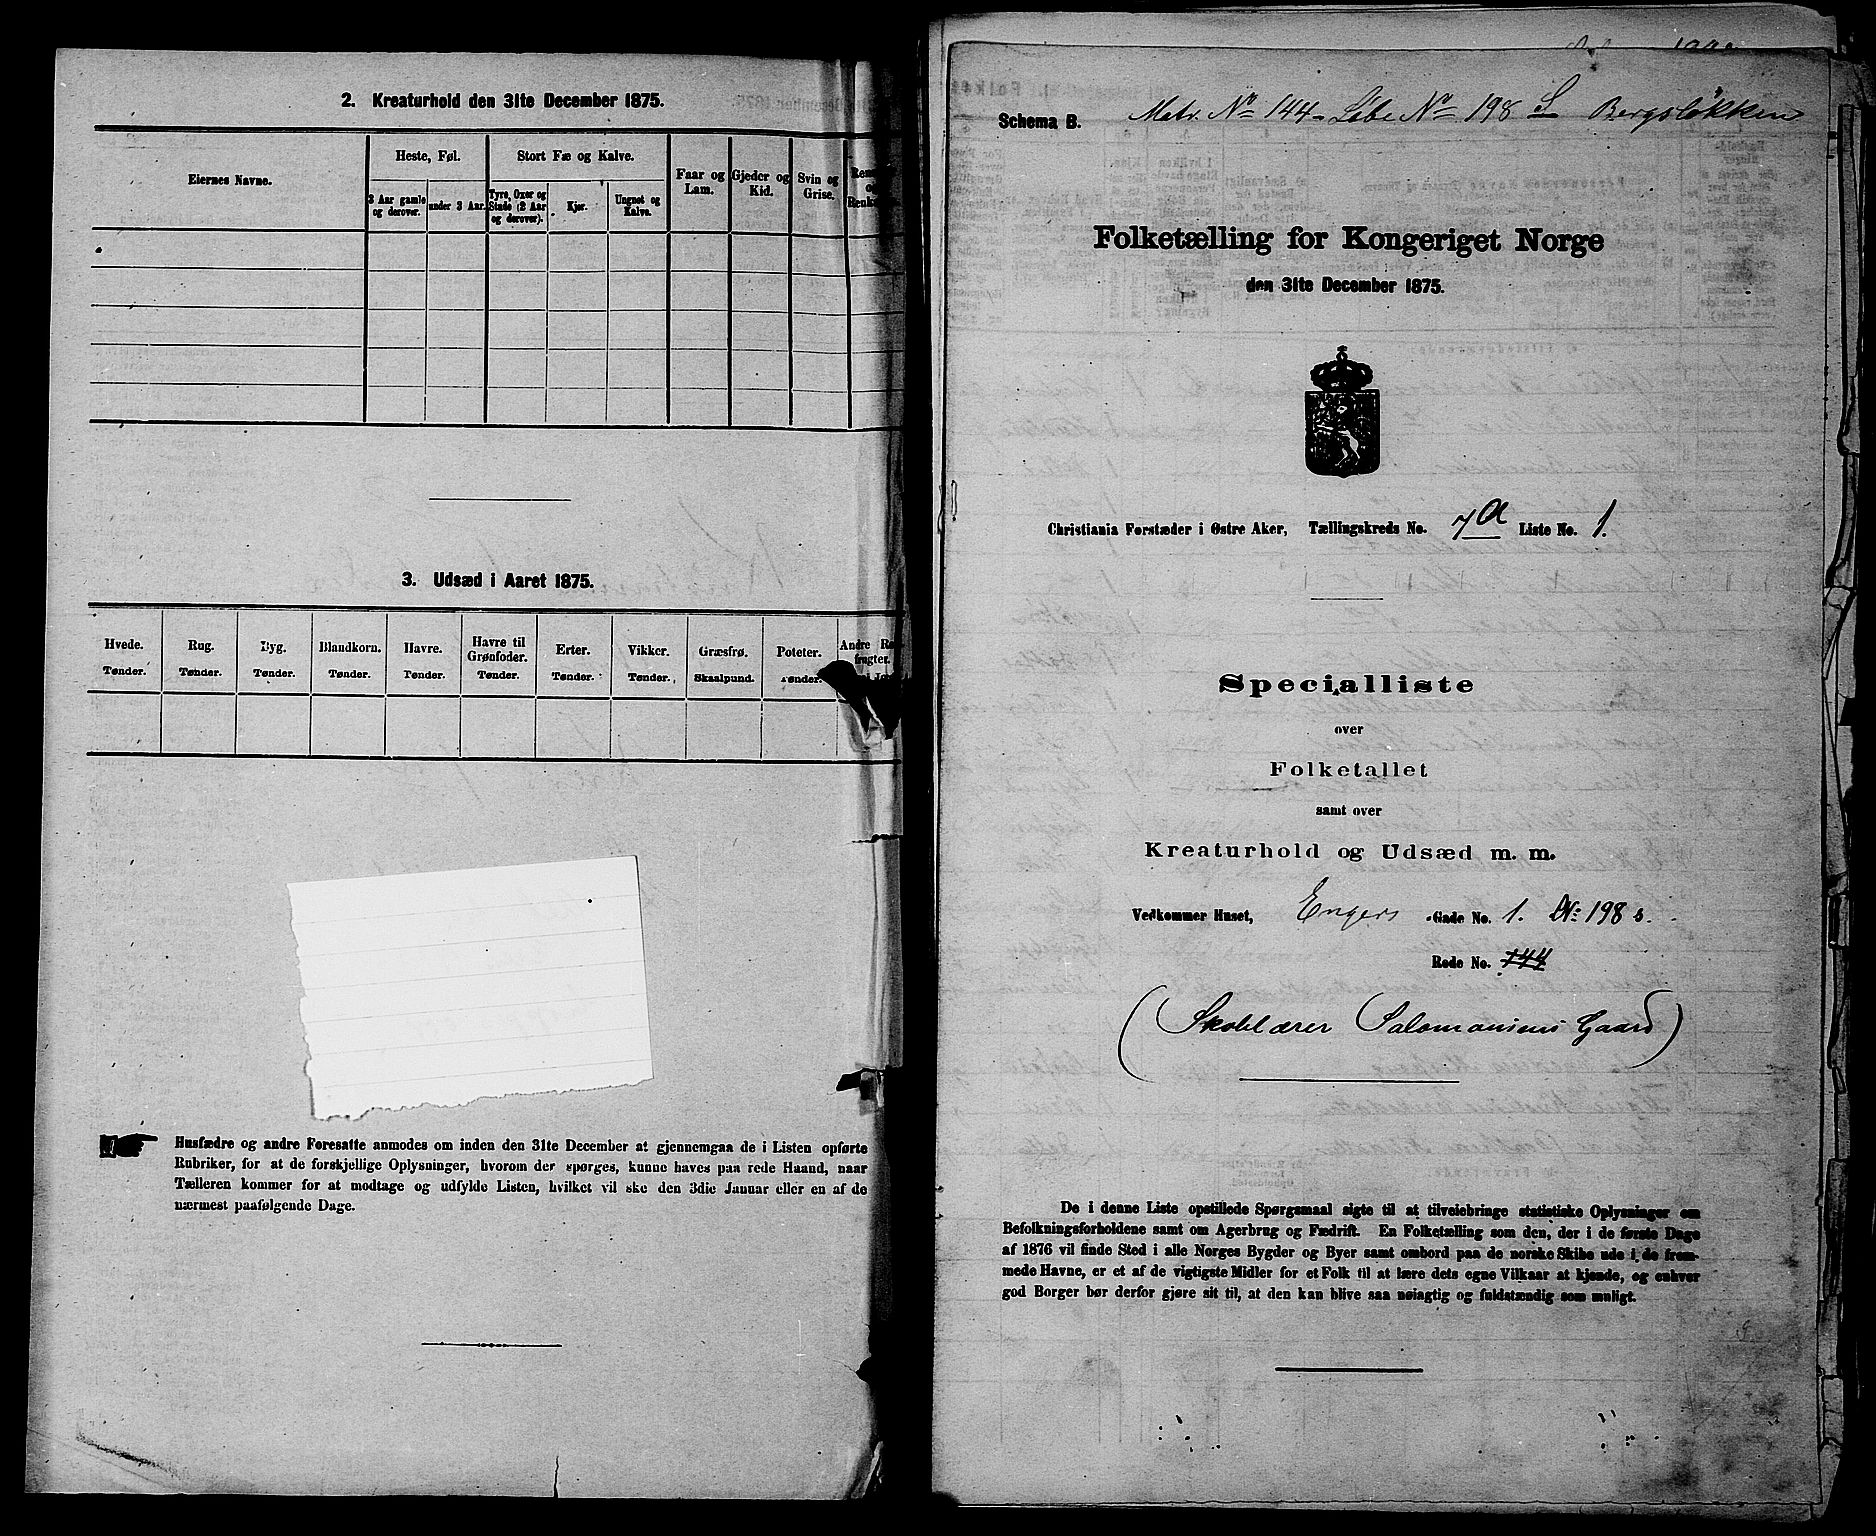 2. Kreaturhold den 31te December 1875.
Eiernes Navne.
Heste, Føl.
Stort Fæ og Kalve.
3 Aar gamle og derover.
under 3 Aar.
Tyre, Oxer og Stude (2 Aar og derover).
Kjør.
Ungnet og Kalve.
Faar og Lam.
Gjeder og Kid.
Svin og Grise.
3. Udsæd i Aaret 1875.
Hvede. Rug. Byg. Blandkorn. Havre. Havre til Grønfoder. Erter. Vikker. Græsfrø. Poteter. Andre
Tønder. Tønder. Tønder. Tønder. Tønder. Tønder. Tønder. Tønder. Skaalpund. Tønder.
Husfædre og andre Foresatte anmodes om inden den 31te December at gjennemgaa de i Listen opførte
Rubriker, for at de forskjellige Oplysninger, hvorom der spørges, kunne haves paa rede Haand, naar
Tælleren kommer for at modtage og udfylde Listen, hvilket vil ske den 3die Januar eller en af de
nærmest paafølgende Dage.
Schema B.
Matr. No 144 - Løbe No 198 S Bergsløkken
Folketælling for Kongeriget Norge
den 31te December 1875.
Christiania Forstæder i Østre Aker, Tællingskreds No. 7a Liste No. 1.
Specialliste
over
Folketallet
samt over
Kreaturhold og Udsæd m. m.
Vedkommer Huset, Engers Gade No. 1. No 198 s.
Rode No. 144
(Skolelærer Salomonsens Gaard)
De i denne Liste opstillede Spørgsmaal sigte til at tilveiebringe statistiske Oplysninger om
Befolkningsforholdene samt om Agerbrug og Fædrift. En Folketælling som den, der i de første Dage
af 1876 vil finde Sted i alle Norges Bygder og Byer samt ombord paa de norske Skibe ude i de frem-
mede Havne, er et af de vigtigste Midler for et Folk til at lære dets egne Vilkaar at kjende, og enhver
god Borger bør derfor gjøre sit til, at den kan blive saa nøiagtig og fuldstændig som muligt.